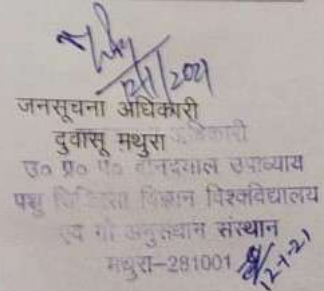 12/1/2021
जनसूचना अधिकारी
दुवासू मथुरा
उ० प्र० पं० दीनदयाल उपाध्याय
पशु चिकित्सा विज्ञान विश्वविद्यालय
एवं गो अनुसंधान संस्थान
मथुरा-281001
12-1-21